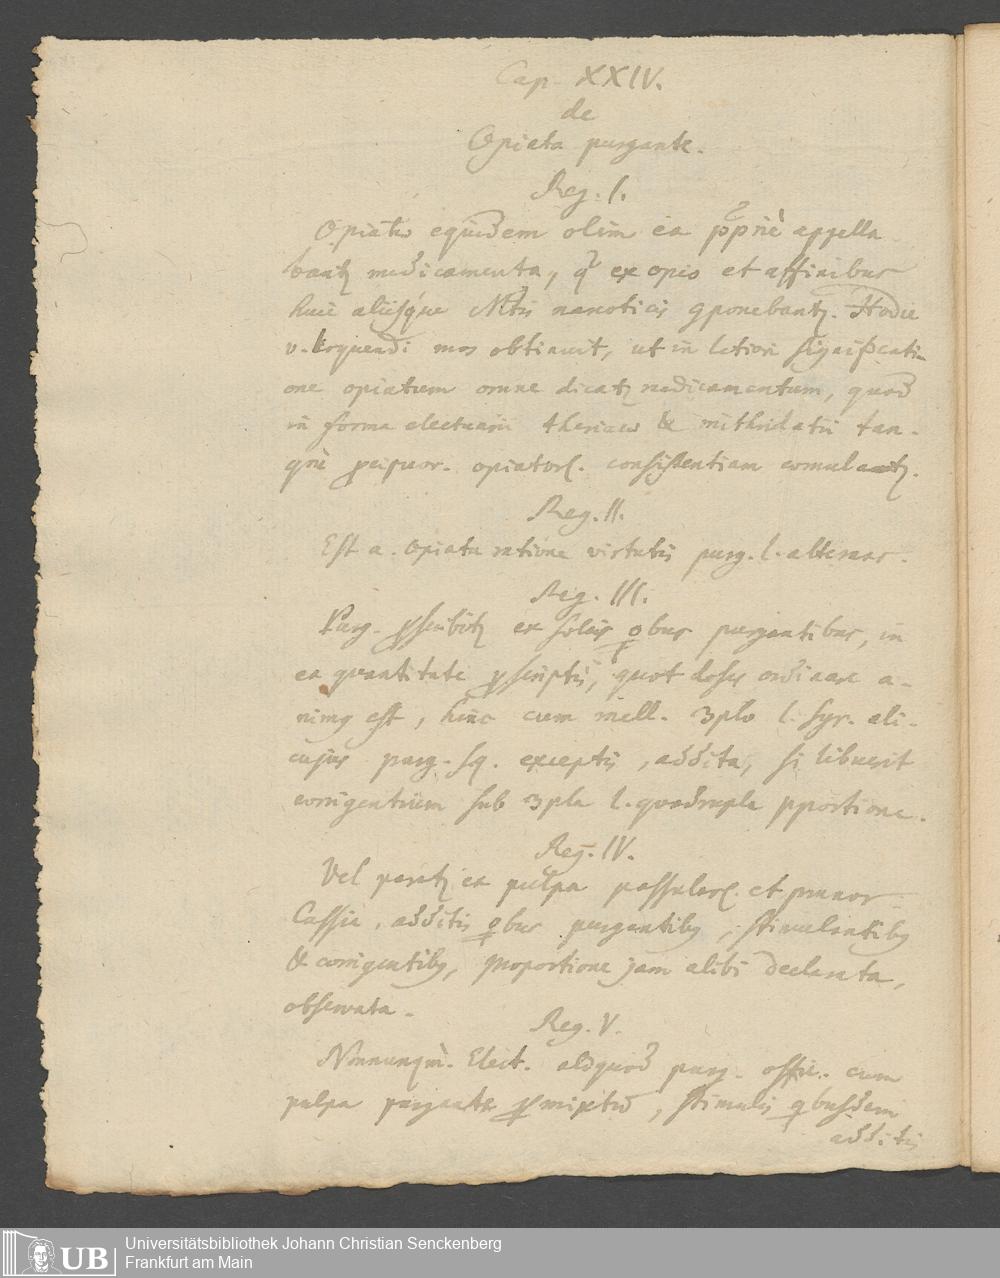 Cap. XXIV.
de
Opiata purgante.
Reg. I.
Opiata equidem olim ea pprie appella
bantz medicamenta, q ex opio et affinibus
huic aliisque Mtis narcoticis gponebantz. Hodie
v. loquendi mos obtinuit, ut in latiori significati-
one opiatum omne dicatz medicamentum, quod
in forma electuarii theriacae & mithridatii tan-
qm pcipuor. opiator. consistentiam aemulatz.
Reg. II.
Est a. opiata ratione virtutis purg. l. alterans.
Reg. III.
Purg. pscribitz ex solis qbus purgantibus, in
ea quantitate pscriptis, quot doses ordinare a-
nimg est, hinc cum mell. 3plo l. syr. ali-
cujus purg. sq. exceptis, addita, si libuerit
corrigentium sub 3pla l. quadrupla pportione.
Reg. IV.
Vel paratz ex pulpa passular. et prunor
Cassia, additis qbus purgantibg, stimulantibg
& corrigentibg, proportione jam alibi declarata,
observata.
Reg. V.
Nonnunqm. Elect. aliquod purg. offic. cum
pulpa purgante pmixtum, stimulis qbusdam
additis
Universitätsbibliothek Johann Christian Senckenberg
Frankfurt am Main
UB